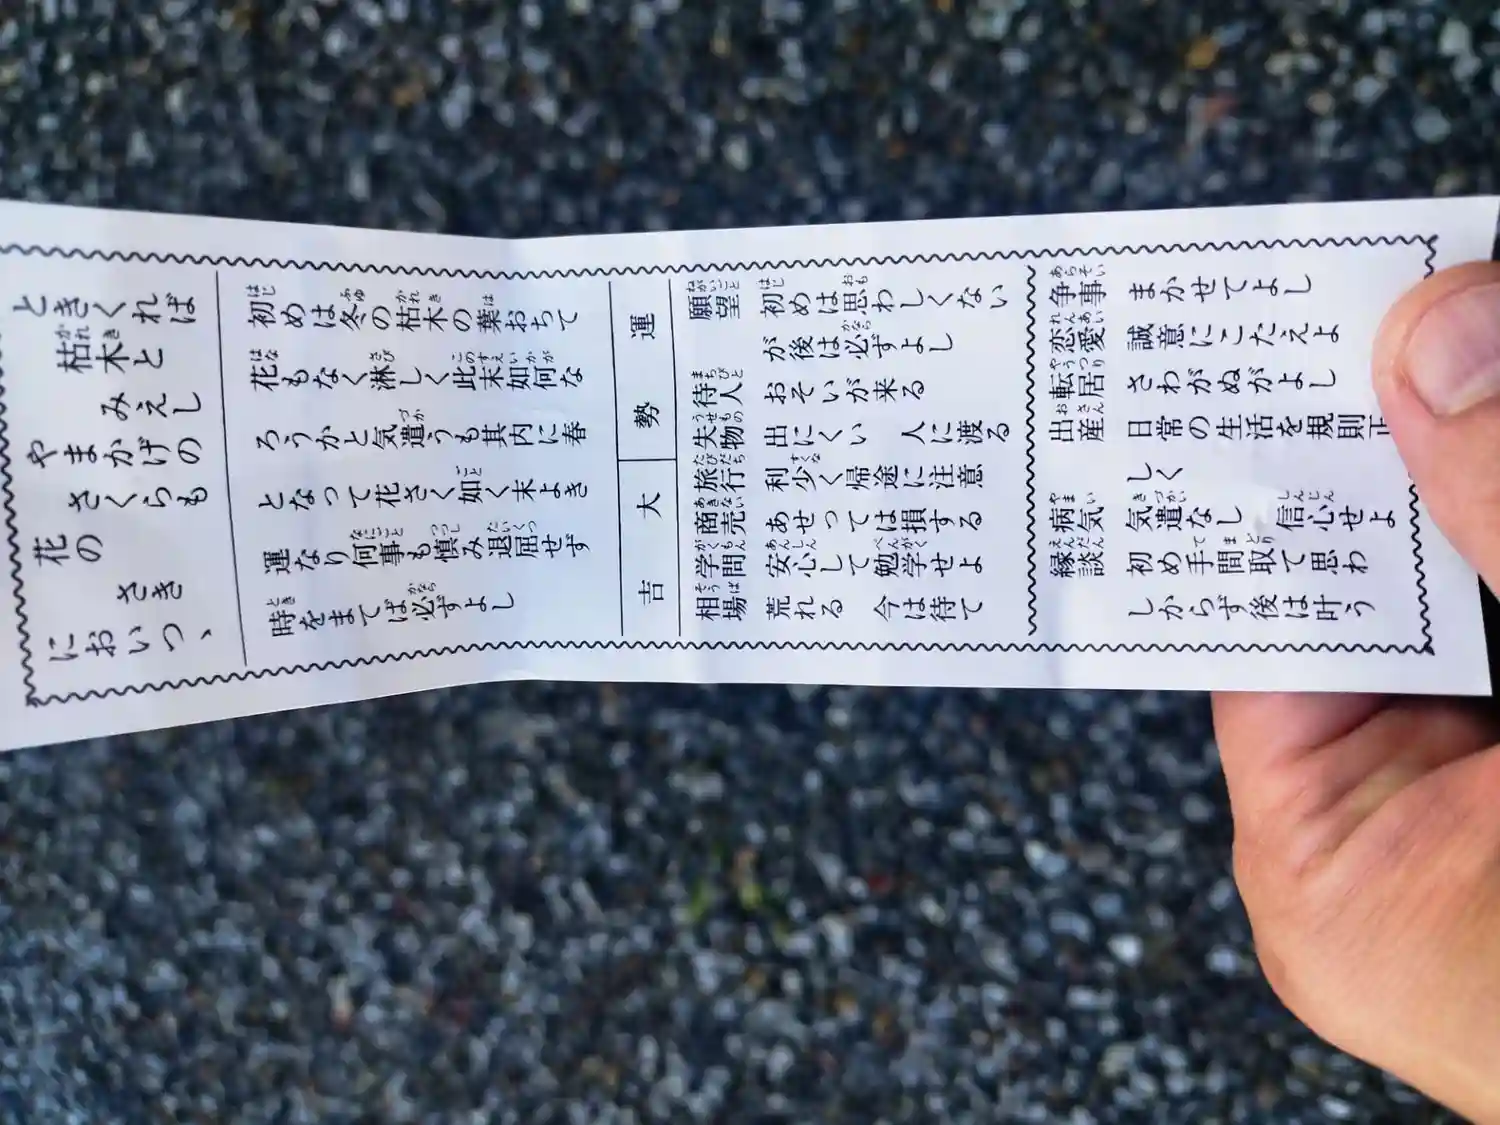 ときくれば
枯木と
みえし
やまかげの
さくらも
花の
さき
においつゝ
初めは冬の枯木の葉おちて
花もなく淋しく此末如何な
ろうかと気遣うも其内に春
となって花さく如く末よき
運なり何事も慎み退屈せず
時をまてば必ずよし
運勢 大吉
願望 初めは思わしくない
が後は必ずよし
待人 おそいが来る
失物 出にくい 人に渡る
旅行 利少く帰途に注意
商売 あせっては損する
学問 安心して勉学せよ
相場 荒れる 今は待て
争事 まかせてよし
恋愛 誠意にこたえよ
転居 さわがぬがよし
出産 日常の生活を規則正
しく
病気 気遣なし 信心せよ
縁談 初め手間取て思わ
しからず後は叶う